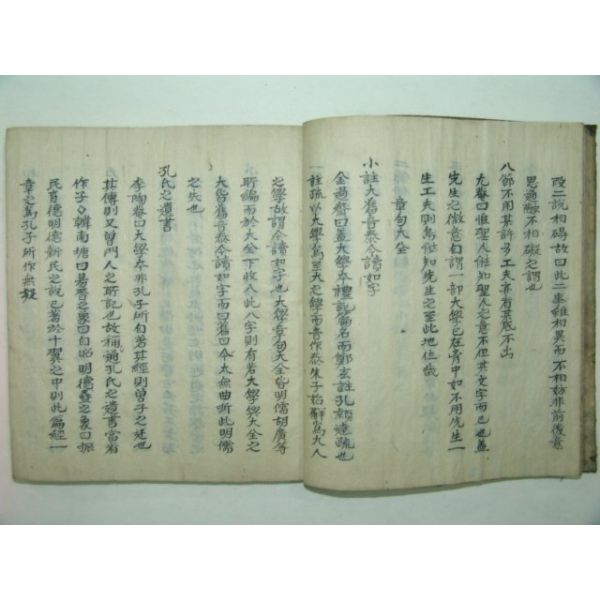 改二說相碍故曰此二車雖相異而不相妨非前後意
思過融不相礙之謂也
八節不用某許多工夫亦有某底不出
尤春曰惟聖人能知聖人之意不但其文字而已也蓋
先生之微意自謂一部大學已在胷中如不用先生一
生工夫則焉能知先生之至此地位哉
章句大全
小註大舊音泰今讀如字
金過齋曰蓋大學本禮記篇名而鄭玄註孔穎達疏也
註疏以大學爲至大之學而音作泰朱子始解爲大人
之學故謂今讀如字也大學章句大全皆明儒胡廣等
所編而於大全下收入此八字則有若大學大全之
大皆舊音泰今讀如字而曰舊曰今太無曲折此明儒
之失也
孔氏之遺書
李陶菴曰大學本非孔子所自著其經則曾子之述也
其傳則又曾門人之所記也故稱道孔氏之遺書當看
作子韓南塘曰若晋之象曰自昭明德蠱之象曰振
民育德明德新民之說已著於十翼之中則此篇經一
章之爲孔子所作無疑